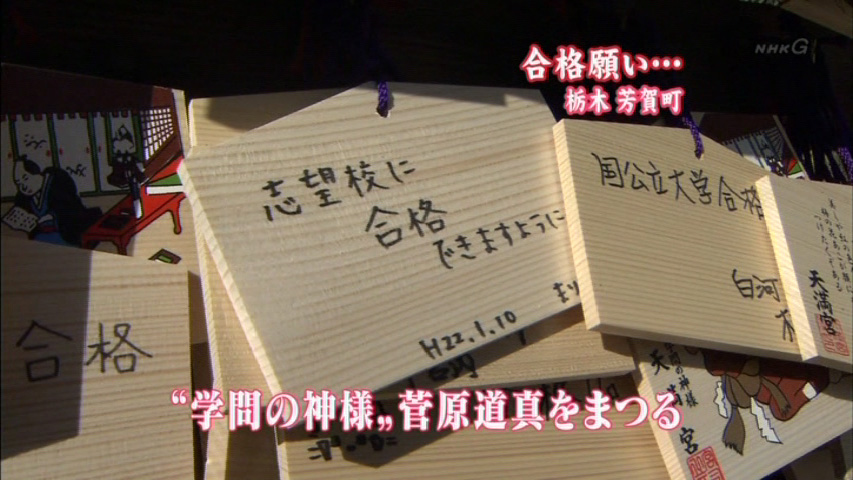 NHK G
合格願い…
栃木 芳賀町
志望校に
合格
できますように
H22.1.10
国公立大学合格
白河
合格
天満宮
学問の神様
天満宮
“学問の神様„菅原道真をまつる